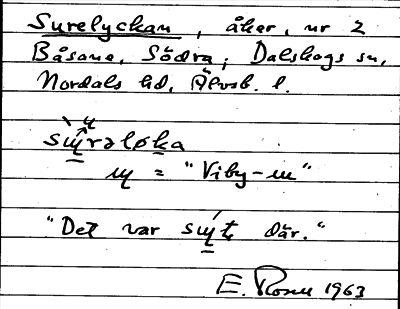 Surelyckan, åker, nr 2
Båsane, Södra; Dalskogs sn,
Nordals hd, Älvsb. l.
sɰ̀rəløka
ɰ = "Viby-ɰ"
"Det var sɰ́tţ där."
E. Rosu 1963